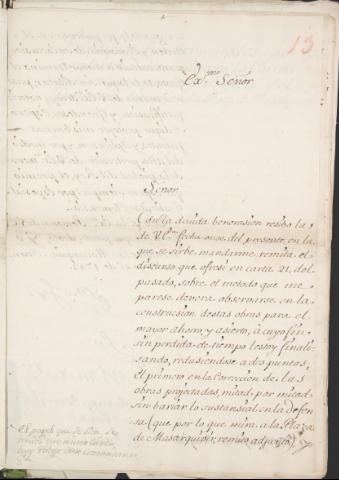 13
Ex.mo Señor
Señor
Con la dauda benerasion resibo la
de V.E. fecha onse del presente, en la
que se sirbe mandarme, remita el
discurso que ofresi en carta 21, del
pasado, sobre el metodo que me
parese devera observarse en la
construsion destas obras para el
mayor ahorro, y asierto, à cuyo fin
sin perdida de tiempo lestoy finali-
sando, redusiendose a dos puntos,
el primero en la Correccion de las
obras projectadas, mitad, por mitad
sin bariar lo sustansial en la defen
sa (que por lo que mira a la Plaza
de Masarquivir, remito adjunto)
El papel que se cita se